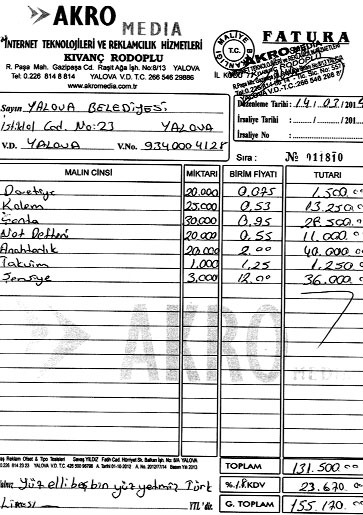 AKRO
MEDIA
İNTERNET TEKNOLOJİLERİ VE REKLAMCILIK HİZMETLERİ
KIVANÇ RODOPLU
R. Paşa Mah. Gazipaşa Cd. Raşit Ağa İşh. No:8/13 YALOVA
Tel:0.226 814 8 814 YALOVA V.D. T.C. 266 546 29886
www.akromedia.com.tr
FATURA
MALİYE
T.C.
AKRO
Sayın YALOVA BELEDİYESİ
İstiklal Cad. No:23 YALOVA
V.D. YALOVA V.No. 934 000 4128
Düzenleme Tarihi : 14 / 03 / 201
İrsaliye Tarihi :
İrsaliye No :
Sıra : № 011810
MALIN CİNSİ MİKTARI BİRİM FİYATI TUTARI
20.000 0.075 1.500.00
Kalem 25.000 0.53 13.250.0
Çanta 30.000 0.95 28.500.00
Not Defteri 20.000 0.55 11.000.00
Anahtarlık 20.000 2.00 40.000.00
Takvim 1.000 1.25 1.250.00
Şemsiye 3.000 12.00 36.000.00
AKRO
MEDIA
TOPLAM 131.500.00
%18 KDV 23.670.00
Yalnız Yüzellibeşbin yüzyetmiş Türk
Lirası YTL'dir.
G. TOPLAM 155.170.00